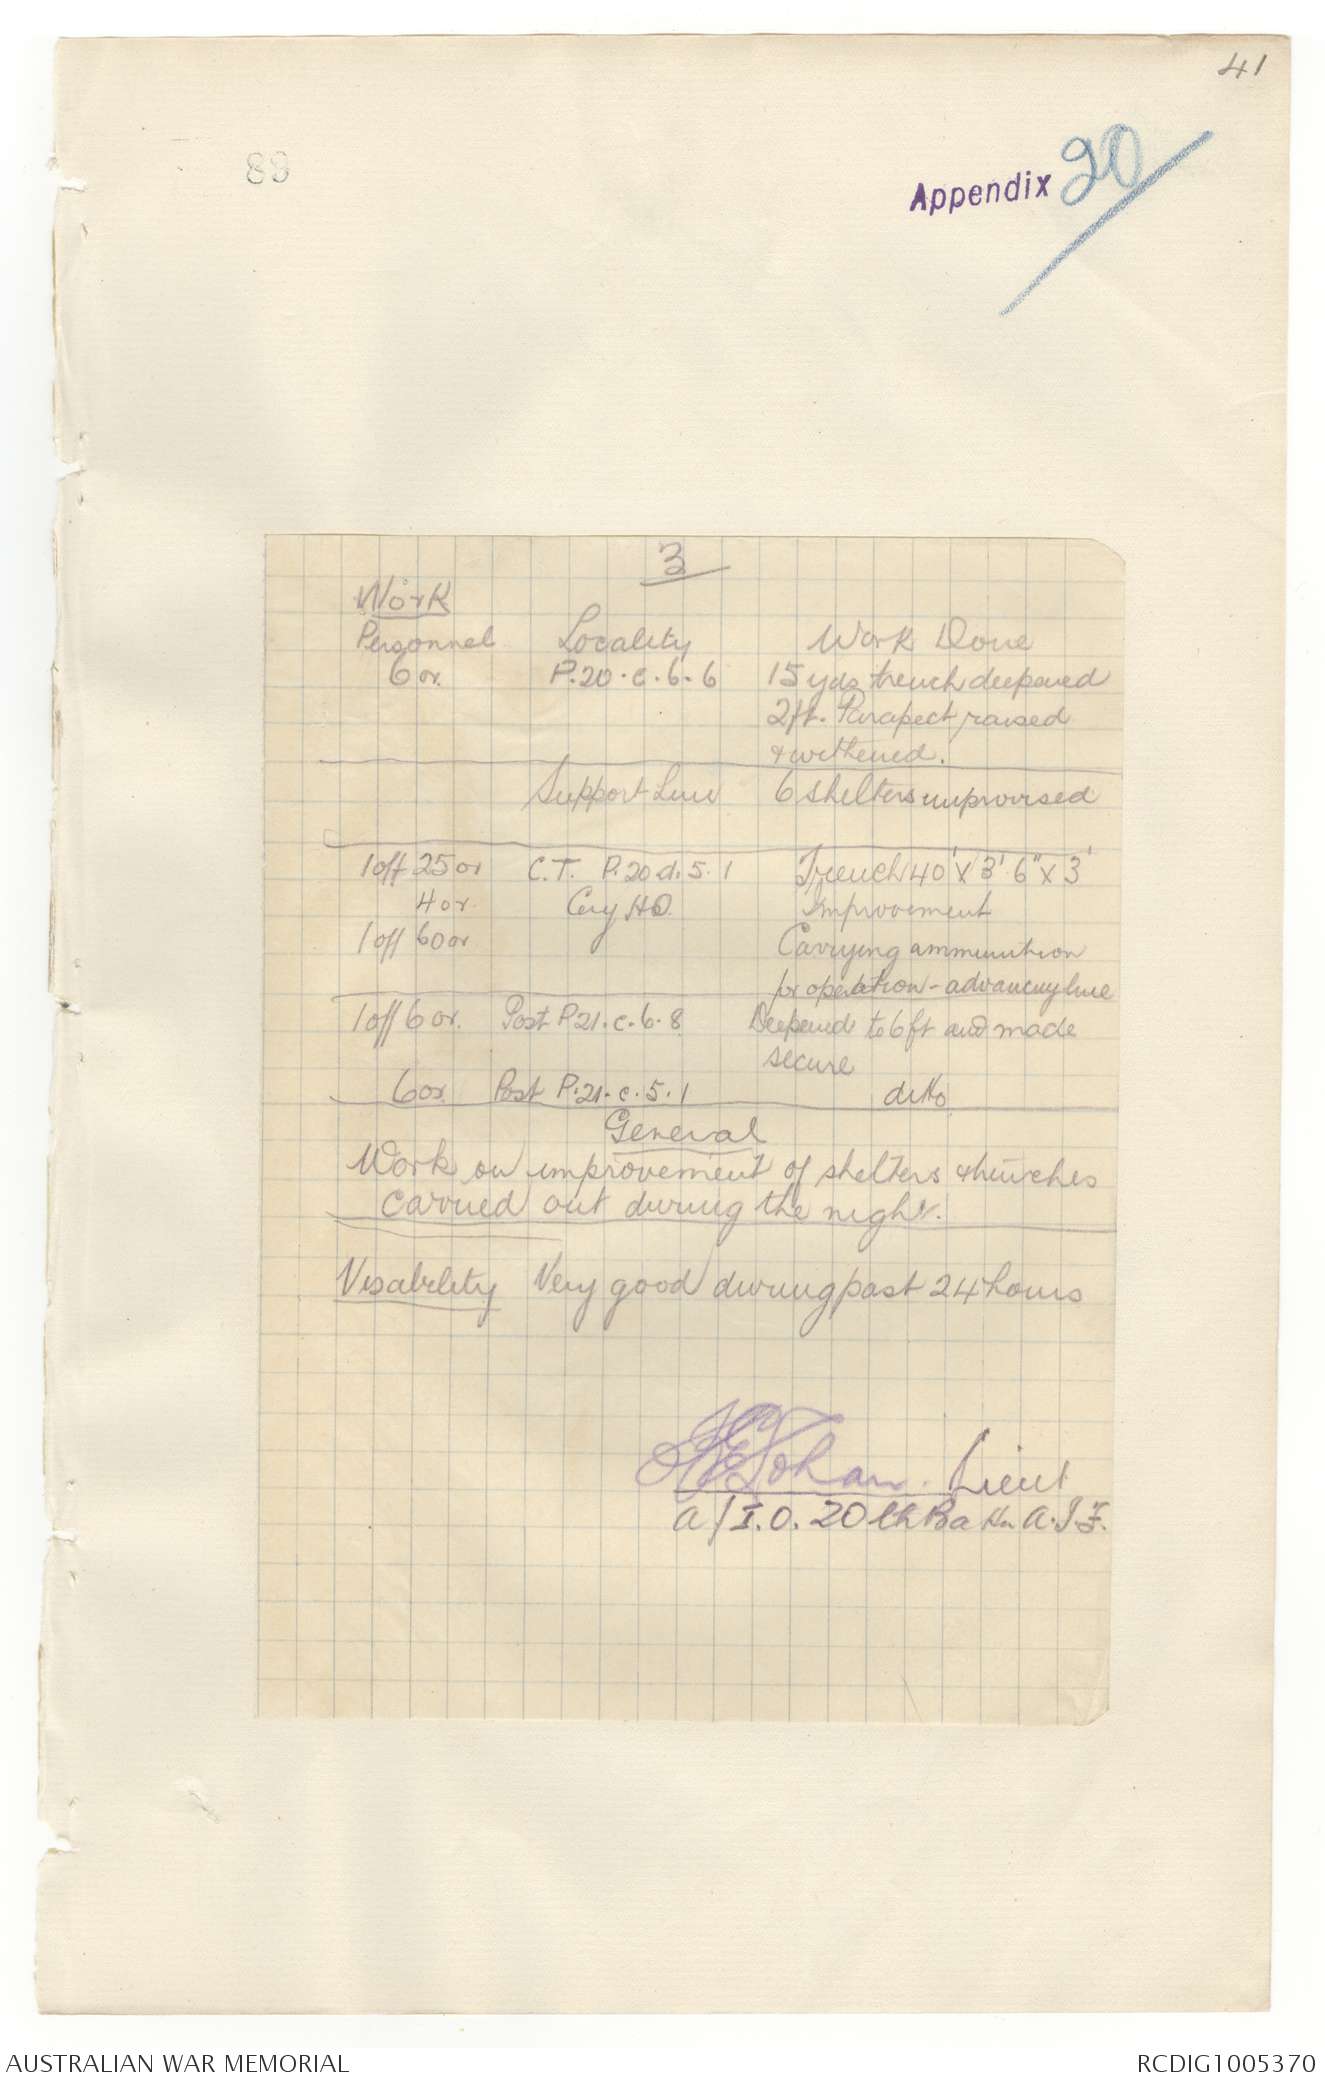 41
89
Appendix 20
3
Work
Personnel Locality Work Done
6 or. P.20.c.6.6 15 yds trench deepened
2ft. Parapect raised
& withened.
Support Line 6 shelters improvised
1 off 25 or C.T. P.20.d.5.1 Trench 40' x 3' 6" x 3'
4 or. Coy HQ. Improvement
1 off 60 or Carrying ammunition
for operation - advancing line
1 off 6 or. Post P.21.c.6.8 Deepened to 6ft and made
secure
6 or. Post P.21.c.5.1 ditto
General
Work on improvement of shelters & trenches
carried out during the night.
Visability Very good during past 24 hours
Lieut
a/I.O. 20th Battn A.I.F.
AUSTRALIAN WAR MEMORIAL RCDIG1005370